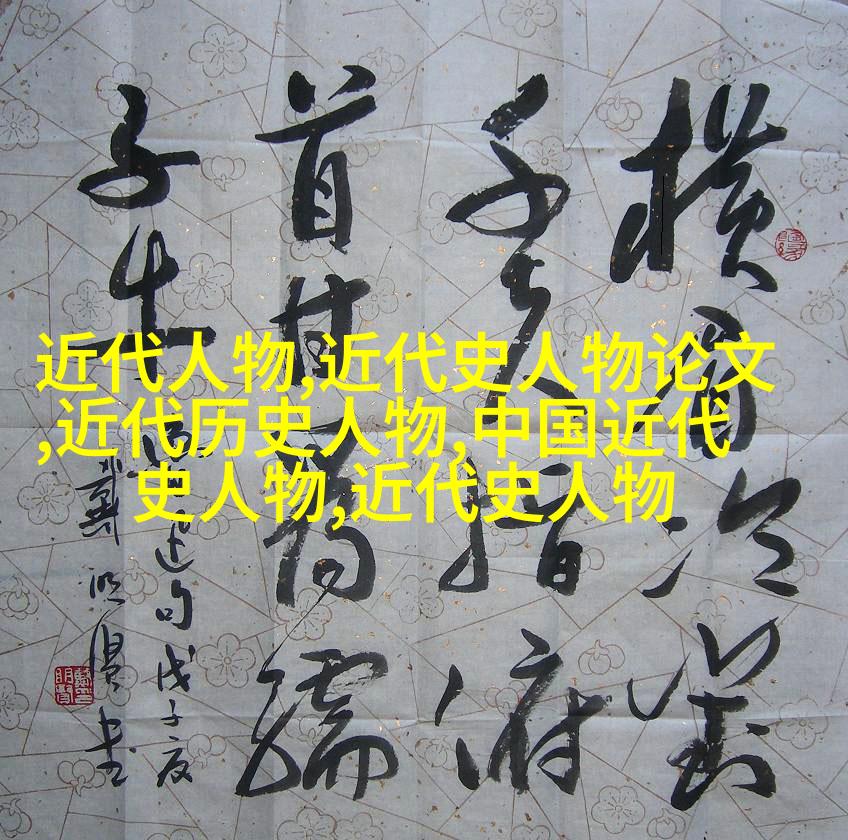 近代人物,近代史人物论文
,近代历史人物,中国近代
史人物,近代史人物
横眉冷對
千夫指俯
首甘為孺
子牛
迅句戊子夏
戴明賢书